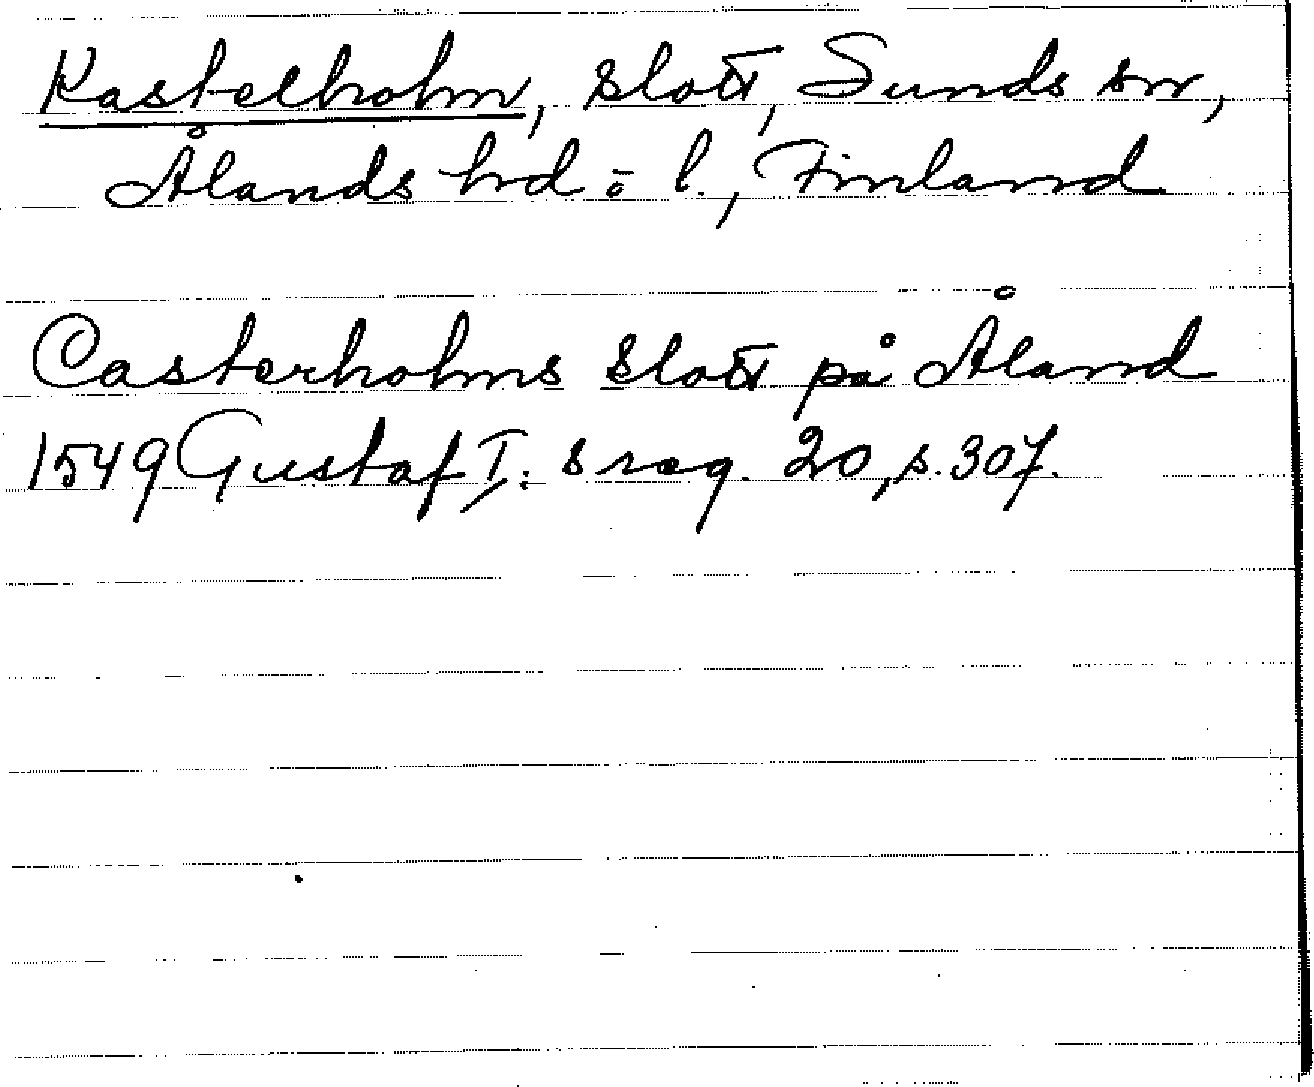 Kastelholm, slott, Sunds sn,
Ålands hd o l., Finland
Casterholms slott på Åland
1549 Gustaf I:s reg. 20, s. 307.